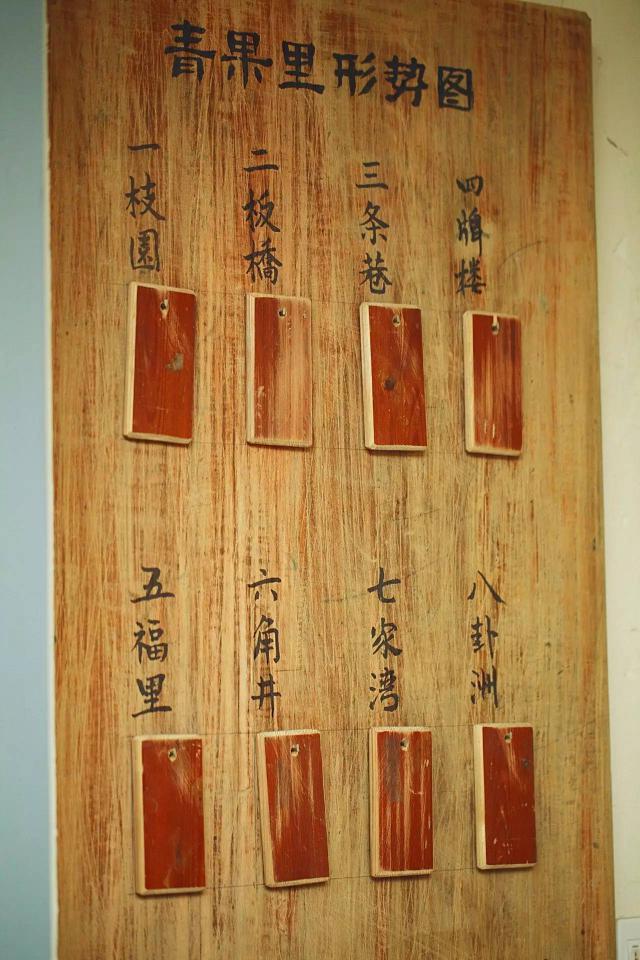 青果里形势图
一枝園
二板橋
三条巷
四牌楼
五福里
六角井
七家湾
八卦洲